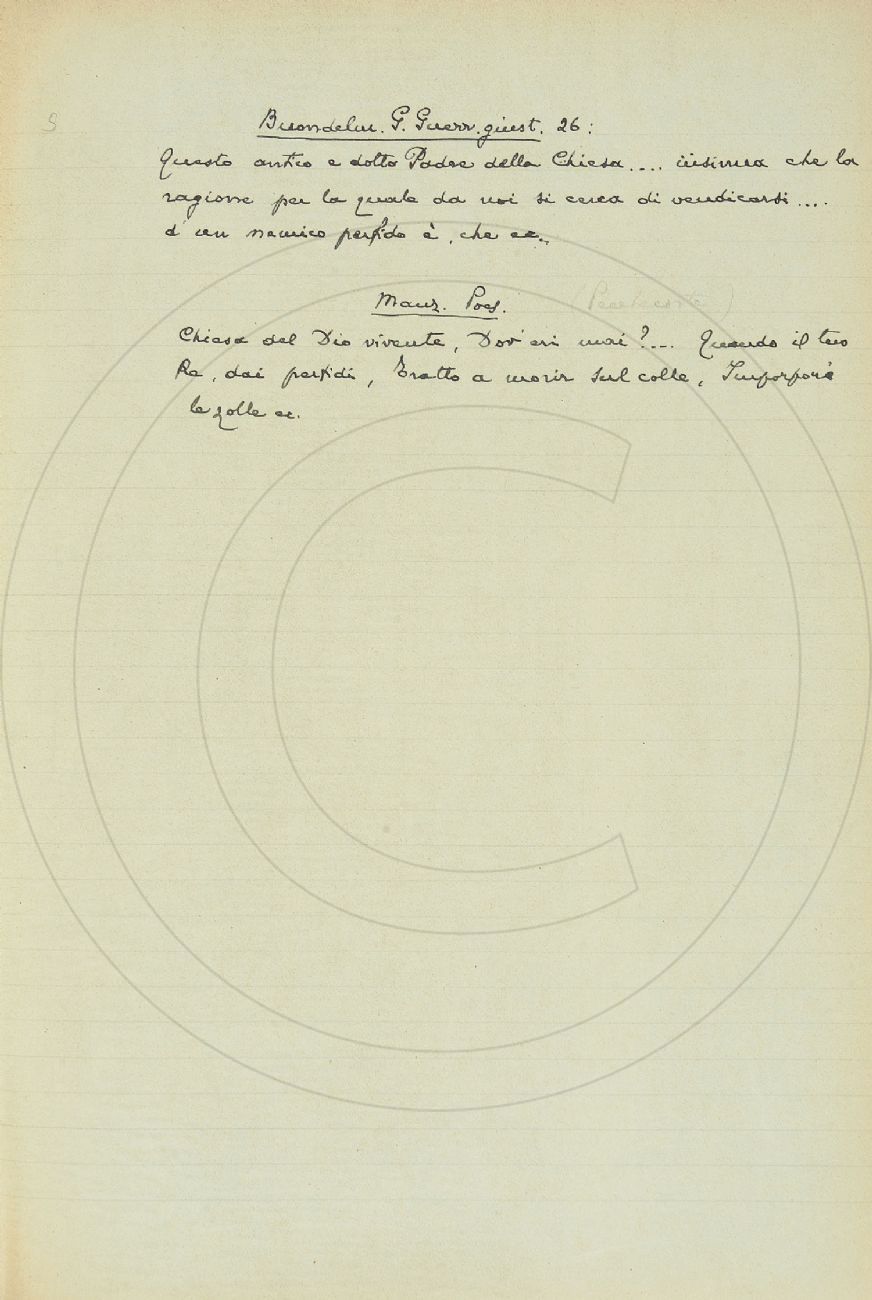 S
Buondelm. G. Guerr. giust. 26:
Questo antico e dotto Padre della Chiesa.... insinua che la
ragione per la quale da noi si cerca di vendicarsi....
d'un nemico perfido è, che ec.
Manz. Poes. (Pentecoste)
Chiesa del Dio vivente, Dov'eri mai?... Quando il tuo
Re, dai perfidi, Tratto a morir sul colle, Imporporò
le zolle ec.